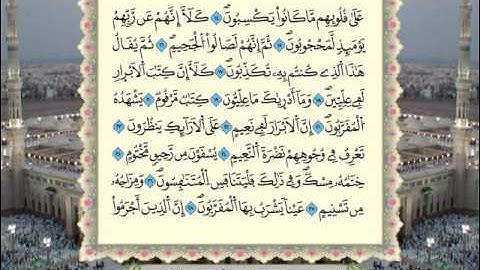 عَلَىٰ قُلُوبِهِم مَّا كَانُوا۟ يَكْسِبُونَ ١٤ كَلَّآ إِنَّهُمْ عَن رَّبِّهِمْ
يَوْمَئِذٍ لَّمَحْجُوبُونَ ١٥ ثُمَّ إِنَّهُمْ لَصَالُوا۟ ٱلْجَحِيمِ ١٦ ثُمَّ يُقَالُ
هَـٰذَا ٱلَّذِى كُنتُم بِهِۦ تُكَذِّبُونَ ١٧ كَلَّآ إِنَّ كِتَـٰبَ ٱلْأَبْرَارِ
لَفِى عِلِّيِّينَ ١٨ وَمَآ أَدْرَىٰكَ مَا عِلِّيُّونَ ١٩ كِتَـٰبٌ مَّرْقُومٌ ٢٠ يَشْهَدُهُ
ٱلْمُقَرَّبُونَ ٢١ إِنَّ ٱلْأَبْرَارَ لَفِى نَعِيمٍ ٢٢ عَلَى ٱلْأَرَآئِكِ يَنظُرُونَ ٢٣
تَعْرِفُ فِى وُجُوهِهِمْ نَضْرَةَ ٱلنَّعِيمِ ٢٤ يُسْقَوْنَ مِن رَّحِيقٍ مَّخْتُومٍ ٢٥
خِتَـٰمُهُۥ مِسْكٌ وَفِى ذَٰلِكَ فَلْيَتَنَافَسِ ٱلْمُتَنَـٰفِسُونَ ٢٦ وَمِزَاجُهُۥ
مِن تَسْنِيمٍ ٢٧ عَيْنًا يَشْرَبُ بِهَا ٱلْمُقَرَّبُونَ ٢٨ إِنَّ ٱلَّذِينَ أَجْرَمُوا۟